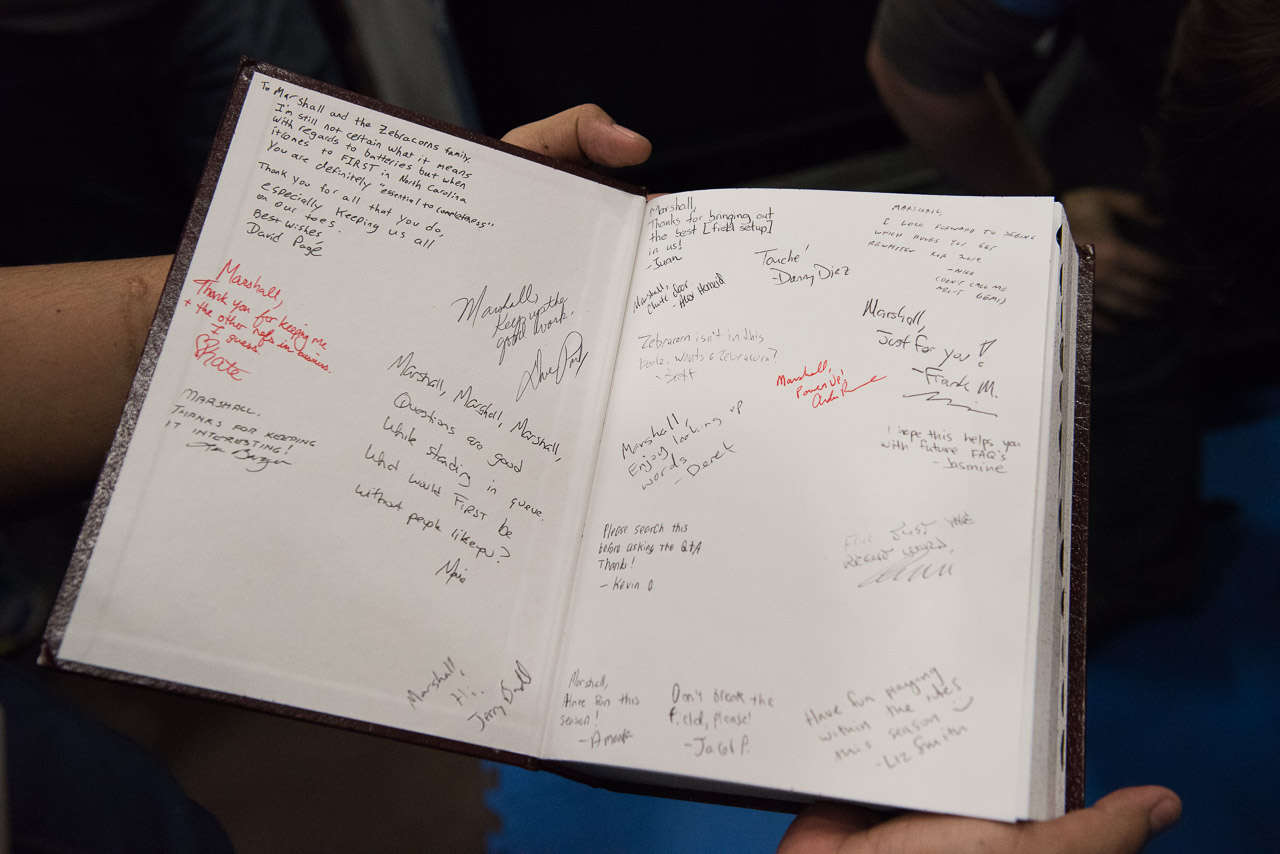 To Marshall and the Zebracorns family,
I'm still not certain what it means
with regards to batteries but when
it comes to FIRST in North Carolina
You are definitely "essential to completeness"
Thank you for all that you do,
especially keeping us all
on our toes.
Best wishes,
David Pagé
Marshall,
Thank you for keeping me
+ the other refs in business.
I guess.
Kate
MARSHALL,
THANKS FOR KEEPING
IT INTERESTING!
Marshall,
Keep up the
good work.
Marshall, Marshall, Marshall,
Questions are good
While standing in queue.
What would FIRST be
without people like you?
Marshall,
Hi.
Jerry
Marshall,
Thanks for bringing out
the best [field setup]
in us!
-Juan
Marshall,
chute door
-Alex
Touché
-Danny Diaz
MARSHALL,
I LOOK FORWARD TO SEEING
WHICH RULES YOU GET
REWRITTEN FOR 2019.
-NICK
(DON'T CALL ME
ABOUT GEMS)
Zebracorn isn't in this
book. What's a Zebracorn?
-Scott
Marshall,
Power Up!
Marshall,
Just for you!
-Frank M.
Marshall,
Enjoy looking up
words
-Derek
I hope this helps you
with future FAQ's
-Jasmine
Please search this
before asking the Q+A
Thanks!
-Kevin O
FOR JUST THE
RIGHT WORD.
Marshall,
Have fun this
season!
-Amanda
Don't break the
field, please!
-Jacob P.
Have fun playing
within the rules
this season
-Liz Smith